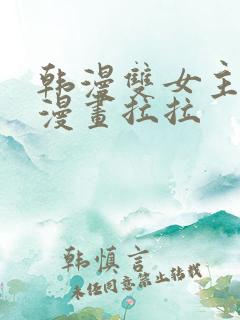 韩漫雙女主
漫畫拉拉
韩慎言
未经同意禁止转载